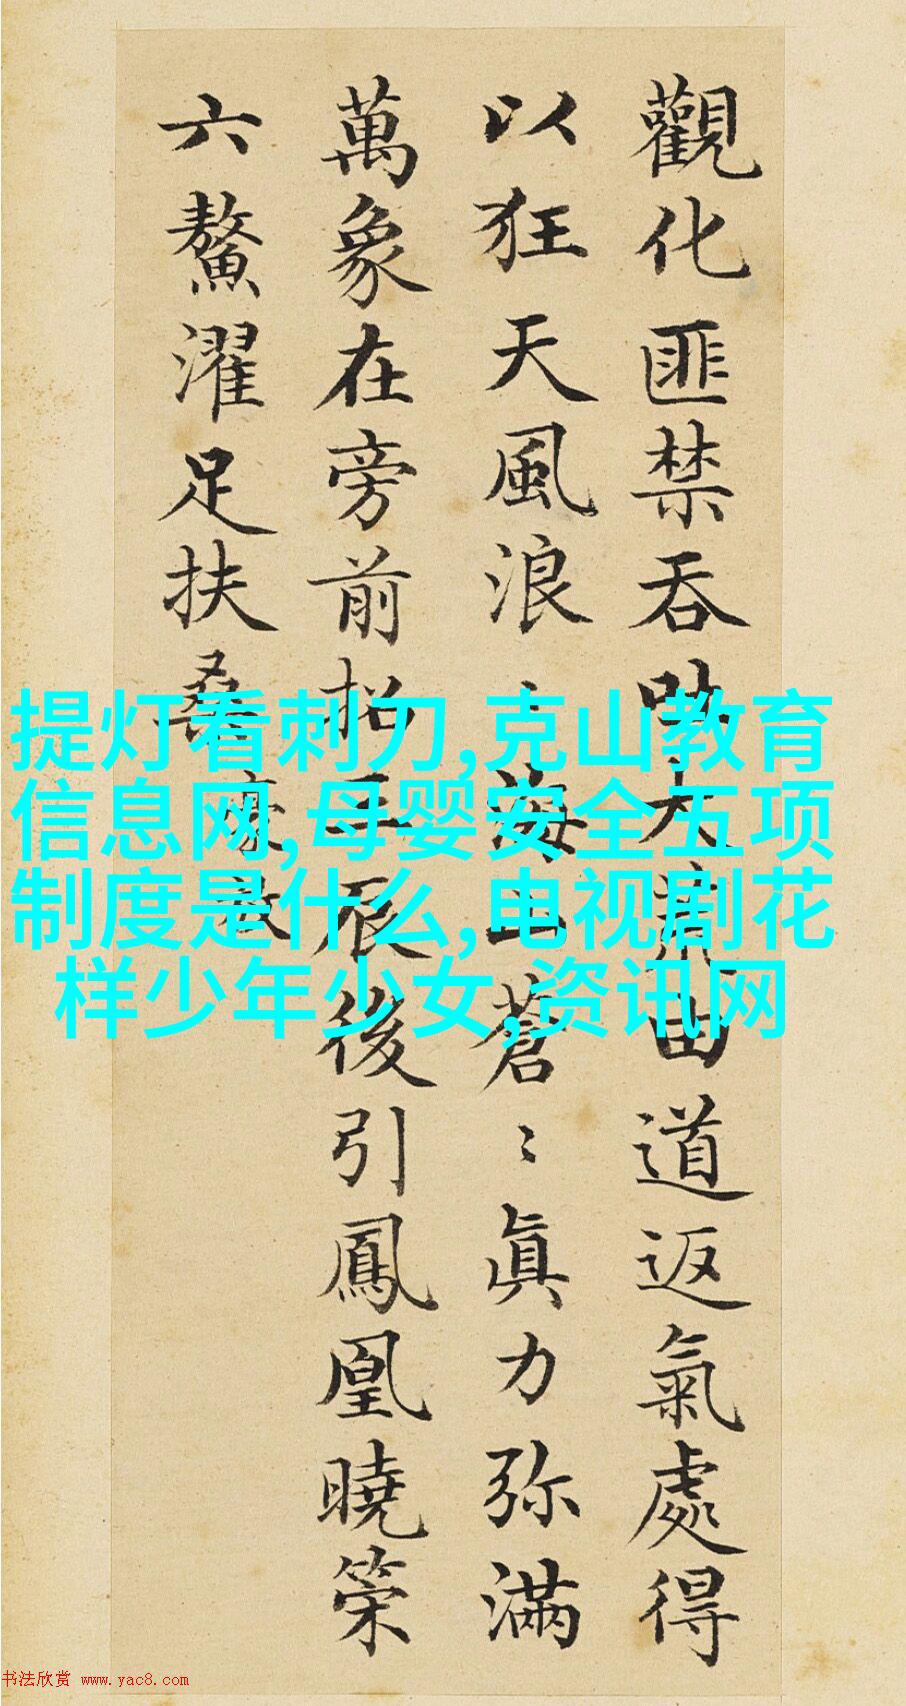 觀化匪禁吞吐大荒由道返氣處得
以狂天風浪〻海山蒼〻眞力弥滿
萬象在旁前招三辰後引鳳凰曉策
六鰲濯足扶桑
豪放
提灯看刺刀,克山教育
信息网,母婴安全五项
制度是什么,电视剧花
样少年少女,资讯网
书法欣赏 www.yac8.com